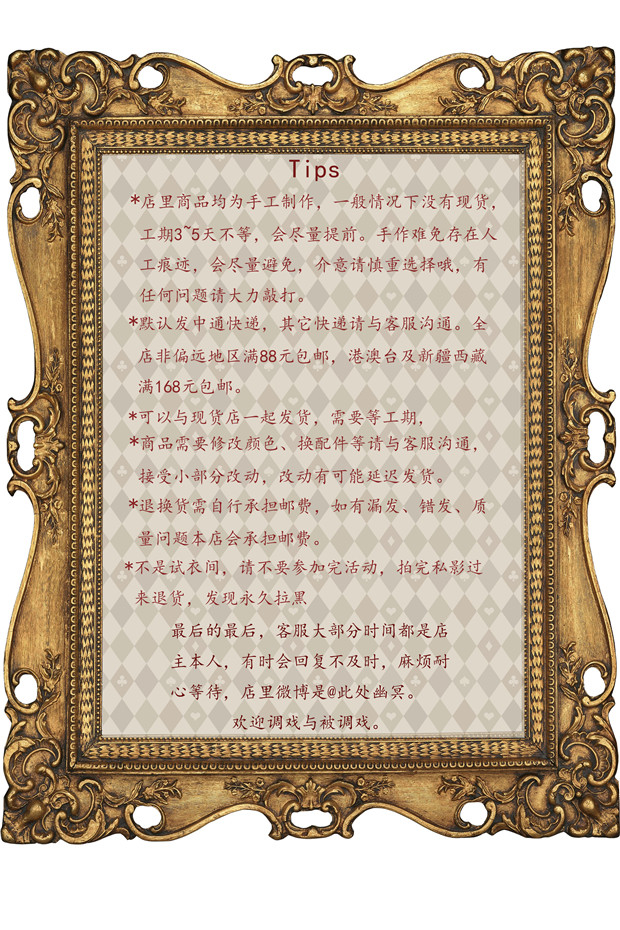 Tips
*店里商品均为手工制作，一般情况下没有现货，
工期3~5天不等，会尽量提前。手作难免存在人
工痕迹，会尽量避免，介意请慎重选择哦，有
任何问题请大力敲打。
*默认发中通快递，其它快递请与客服沟通。全
店非偏远地区满88元包邮，港澳台及新疆西藏
满168元包邮。
*可以与现货店一起发货，需要等工期，
*商品需要修改颜色、换配件等请与客服沟通，
接受小部分改动，改动有可能延迟发货。
*退换货需自行承担邮费，如有漏发、错发、质
量问题本店会承担邮费。
*不是试衣间，请不要参加完活动，拍完私影过
来退货，发现永久拉黑
最后的最后，客服大部分时间都是店
主本人，有时会回复不及时，麻烦耐
心等待，店里微博是@此处幽冥。
欢迎调戏与被调戏。